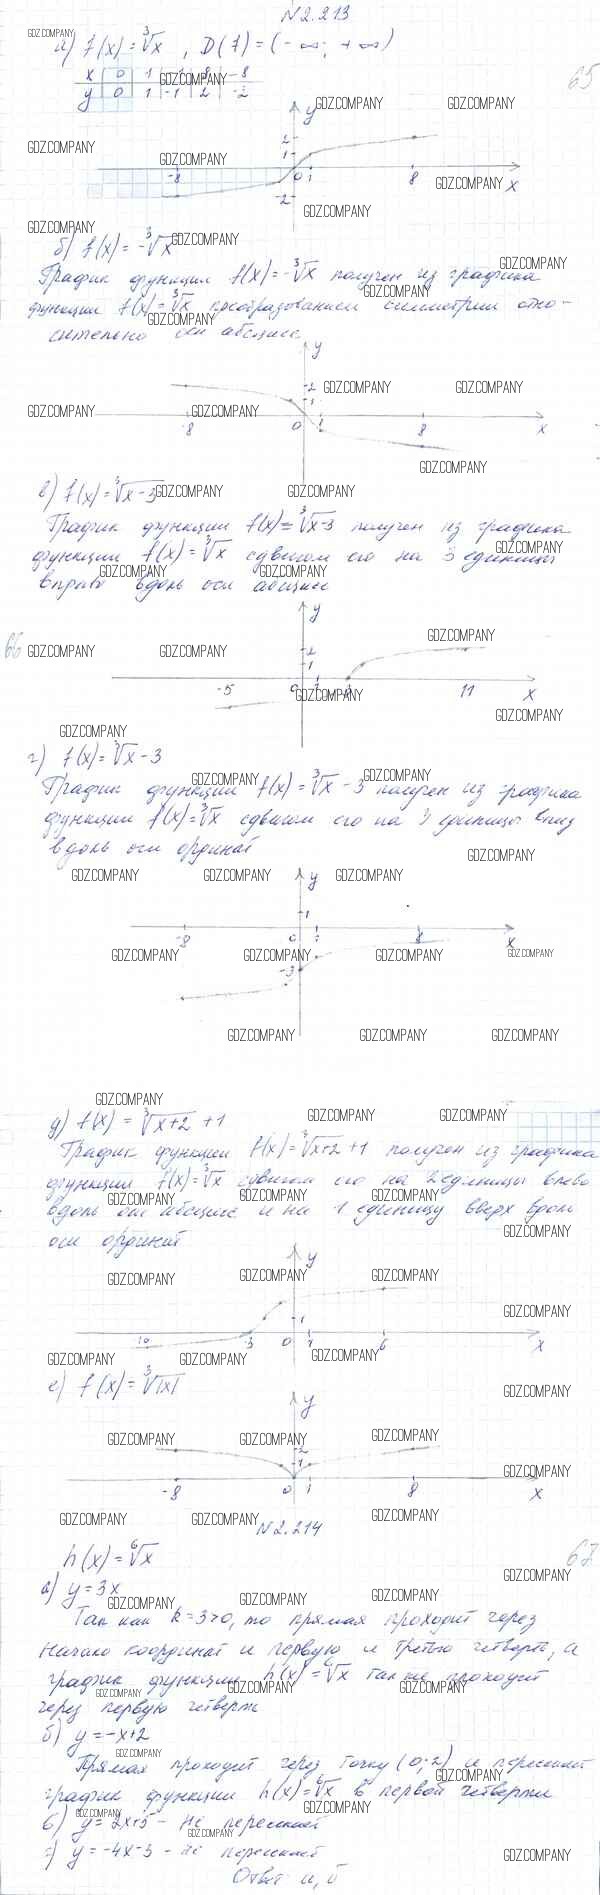 N2.213
а) f(x) = ∛x , D(f) = (-∞; +∞)
x 0 1 -1 8 -8
y 0 1 -1 2 -2
65
y
2
1
-8 0 1 8 x
-2
б) f(x) = -∛x
График функции f(x) = -∛x получен из графика
функции f(x) = ∛x преобразованием симметрии отно-
сительно оси абсцисс
y
2
1
-8 0 1 8 x
в) f(x) = ∛(x-3)
График функции f(x) = ∛(x-3) получен из графика
функции f(x) = ∛x сдвигом его на 3 единицы
вправо вдоль оси абсцисс
66
y
2
1
-5 0 1 11 x
г) f(x) = ∛x - 3
График функции f(x) = ∛x - 3 получен из графика
функции f(x) = ∛x сдвигом его на 3 единицы вниз
вдоль оси ординат
y
1
-8 0 1 8 x
-3
д) f(x) = ∛(x+2) + 1
График функции f(x) = ∛(x+2) + 1 получен из графика
функции f(x) = ∛x сдвигом его на 2 единицы влево
вдоль оси абсцисс и на 1 единицу вверх вдоль
оси ординат
y
1
-10 -3 0 1 6 x
е) f(x) = ∛|x|
y
2
1
-8 0 1 8 x
N2.214
67
h(x) = ⁶√x
а) y = 3x
Так как k = 3>0, то прямая проходит через
начало координат и первую и третью четверти, а
график функции h(x) = ⁶√x также проходит
через первую четверть
б) y = -x+2
Прямая проходит через точку (0; 2) и пересекает
график функции h(x) = ⁶√x в первой четверти
в) y = 2x+5 - не пересекает
г) y = -4x-3 - не пересекает
Ответ: а, б
GDZ.COMPANY